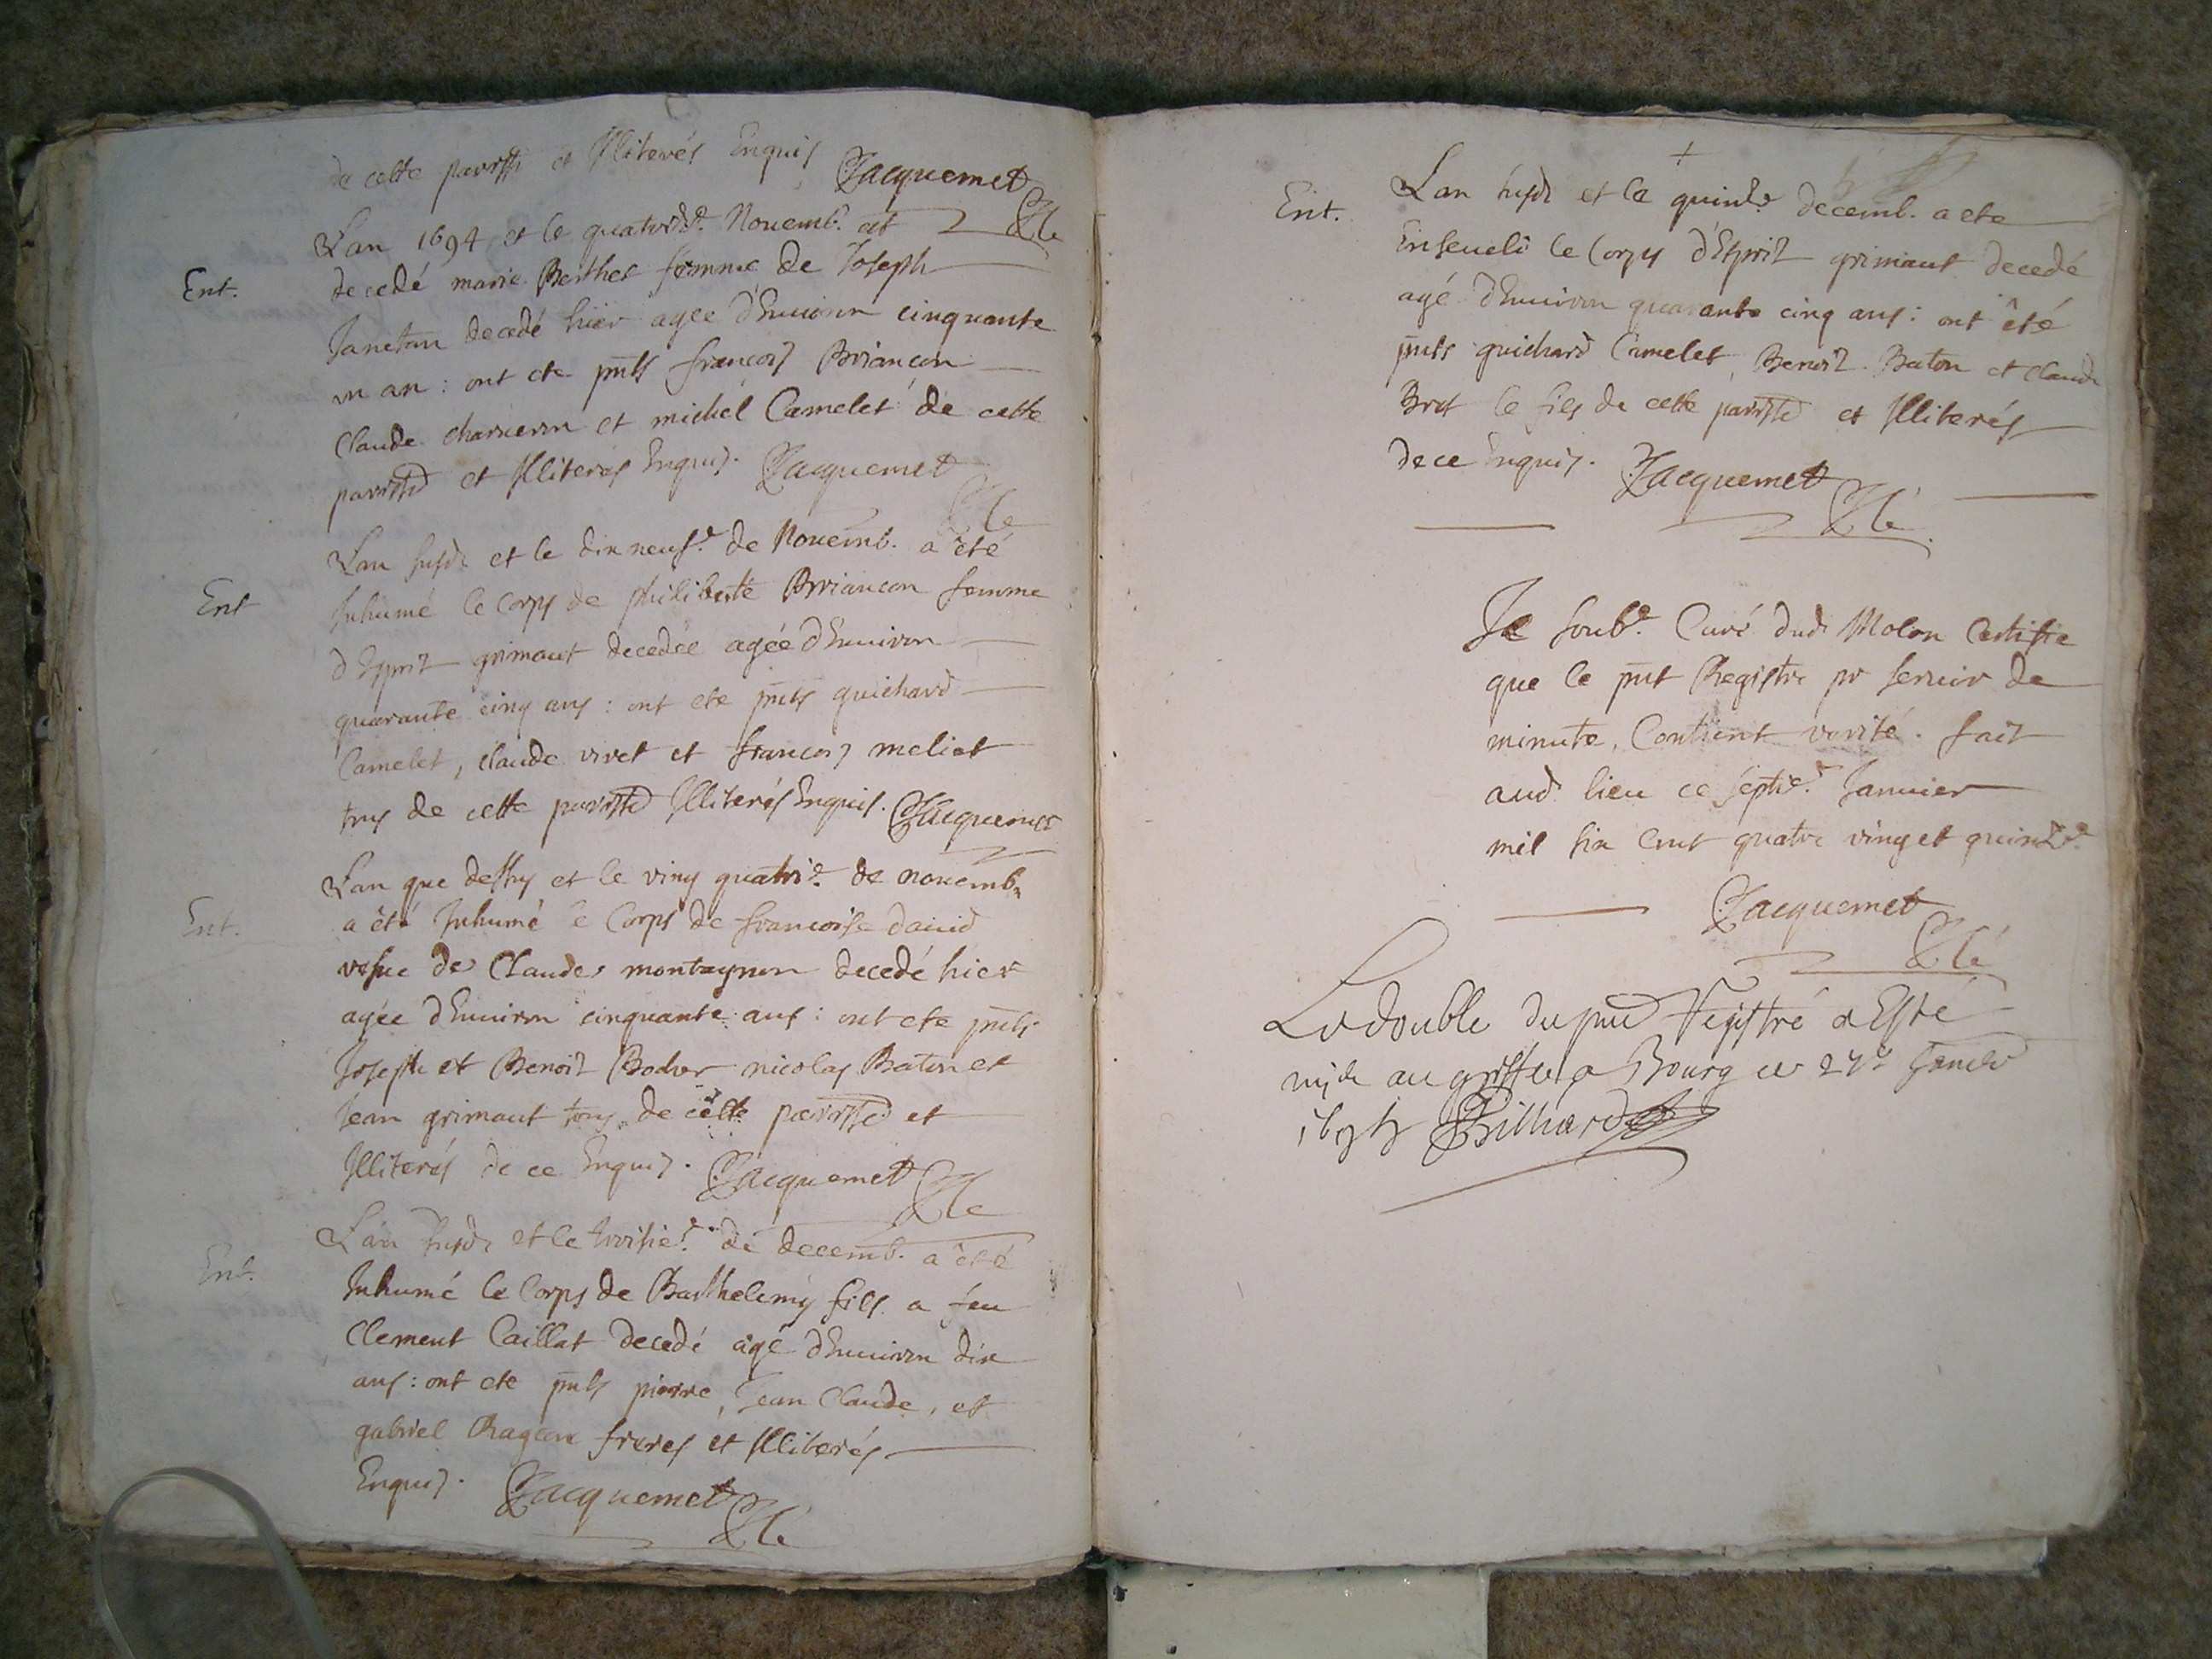 de cette parisse et Illiterés Enquis Jacquemet
Ent.
Lan 1694 et le quatorze.e Nouemb. est
decedé marie Berthet femme de Joseph
Janeton decedé hier agee d'Enuiron cinquante
vn an : ont ete pnts francois Briancon
Claude charueron et michel Camelet de cette
parisse et Illiterés Enquis. Jacquemet
Ent
Lan susd. et le dix neuf.e de Nouemb. a êté
Inhumé le Corps de philiberte Briancon femme
d'Esprit grimaut decedée agée d'Enuiron
quarante cinq ans : ont ete pnts guichard
Camelet, claude vivet et francois meliat
tous de cette parisse Illiterés Enquis. Jacquemet
Ent.
Lan que dessus et le ving quatrie. de nouemb.
a êté Inhumé le Corps de francoise dauid
vefue de Claude montagnon decedé hier
agée d'Enuiron cinquante ans : ont ete pnts
Joseph et Benoit Boder nicolas Baton et
Jean grimaut tous de cette parisse et
Illiterés de ce Enquis. Jacquemet
Ent.
Lan susd. et le troisie.e de decemb. a êté
Inhumé le Corps de Barthelemy fils a feu
Clement Caillat decedé agé d'Enuiron dix
ans : ont ete pnts pierre, Jean Claude, et
gabriel Rageon freres et Illiterés
Enquis. Jacquemet
Ent.
Lan susd. et le quinze decemb. a ete
Enseueli le Corps d'Esprit grimaut decedé
agé d'Enuiron quarante cinq ans : ont êté
pnts guichard Camelet, Benoit Baton et claude
Brot le fils de cette parisse et Illiterés
de ce Enquis. Jacquemet
Je soub.e Curé dud. Molon Certifie
que le pnt Registre pr seruir de
minute, Contient verité. fait
aud. lieu ce septie.e Januier
mil six Cent quatre ving et quinze.
Jacquemet
Le double du pnt Registré a Esté
mis au greffe a Bourg ce 27e Januier
1695 Bilhard